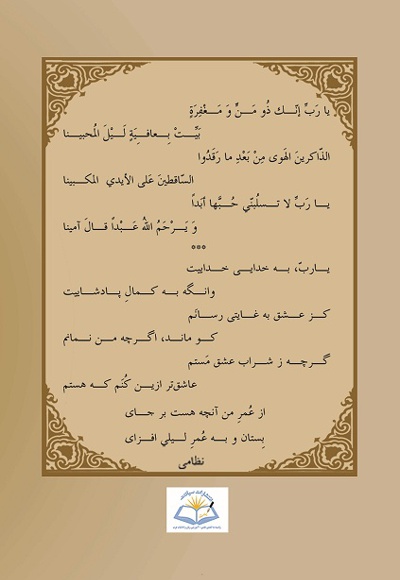 يا رَبِّ إنّـك ذُو مَـنٍّ وَ مَـغْفِرَةٍ
بَيِّـتْ بِـعافـيَةٍ لَـيْلَ المُحبيـنا
الذّاكرينَ الهَوى مِنْ بَعْدِ ما رَقَدُوا
السّاقطينَ عَلى الأيدي المكـبينا
يـا رَبِّ لا تـسلُبنّي حُـبَّها أبَداً
وَ يَـرْحَمُ اللهُ عَـبْداً قـالَ آمينا
***
یـاربّ، بـه خدایـی خـداییت
وانـگه بـه کـمالِ پـادشاییت
کـز عـشق به غـایتی رسـانَم
کـو مانـد، اگـرچه مـن نـمانم
گـرچـه ز شـراب عشق مَستم
عاشق‌تر ازیـن کُنَم کـه هستم
از عُمرِ من آنچه هست بر جـای
بِستان و بـه عُمرِ لـیلي افـزای
نظامی